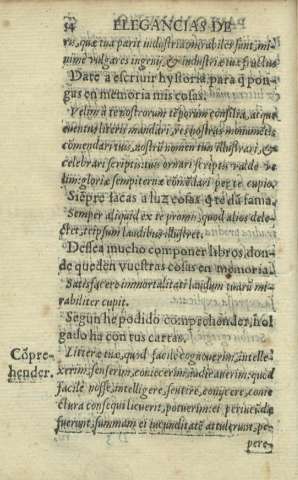 54 ELEGANCIAS DE
ris, quæ tua parit industria mirabiles sunt, mi-
nime vulgares ingenij, & industriæ tuæ fructus
Date a escriuir hystoria, para q̃ pon-
gas en memoria mis cosas.
Velim à te nostrorum tẽporum consilia, atque
euentus literis mandari, res nostras monumẽtis
cõmendari tuis, nostrũ nomen tum illustrari, &
celebrari scriptis: tuis ornari scriptis valde ve
lim: gloriæ sempiternæ cõmẽdari per te cupio.
Siẽpre sacas a luz cosas q̃ te dã fama.
Semper aliquid ex te promis, quod alios dele-
ctet, te ipsum laudibus illustret.
Dessea mucho componer libros, don-
de queden vuestras cosas en memoria.
Satisfacere immortalitati laudum tuarũ mi-
rabiliter cupit.
Segun he podido comprehender, hol
gado ha con tus cartas.
Cõpre-
hender.
Litteræ tuæ, quod facile cognouerim, intelle-
xerim: senserim, coniecerim, audire auerim: quod
facile posse, intelligere, sentire, conijcere, conie-
ctura consequi licuerit, potuerim: ei periucũdæ
fuerunt, summam ei iucunditatẽ attulerunt, pe-
pere-